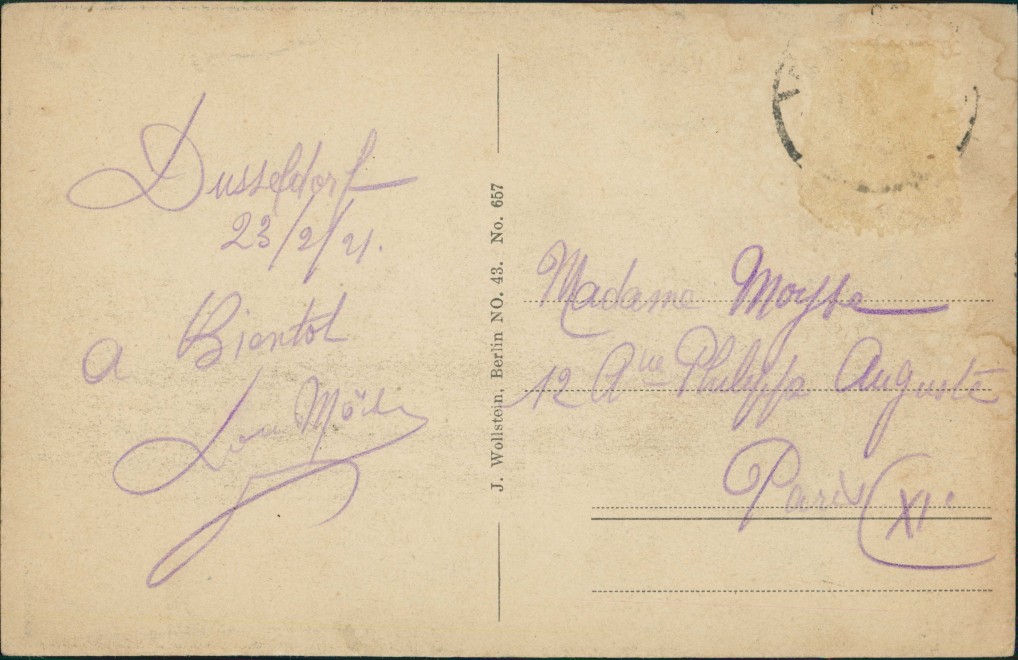 Dusseldorf
23/2/21.
a Bientot
J. Wollstein, Berlin NO. 43. No. 657
Madame Moysse
12 Aue Philippe Auguste
Paris (XIe